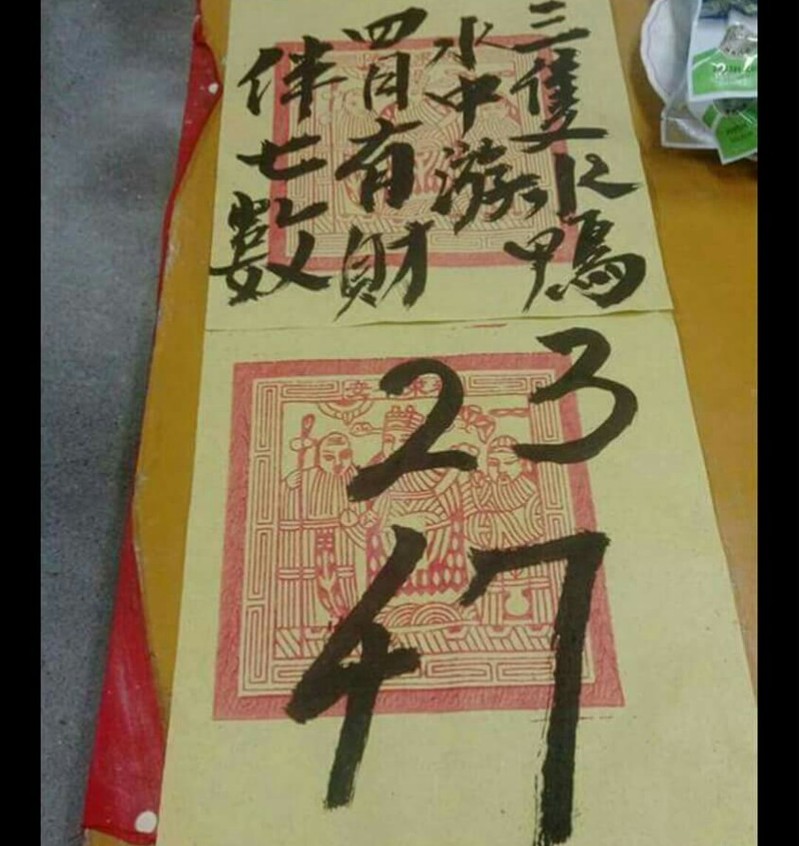 三隻水鴨
水中游
四目有財
伴七數
23
47